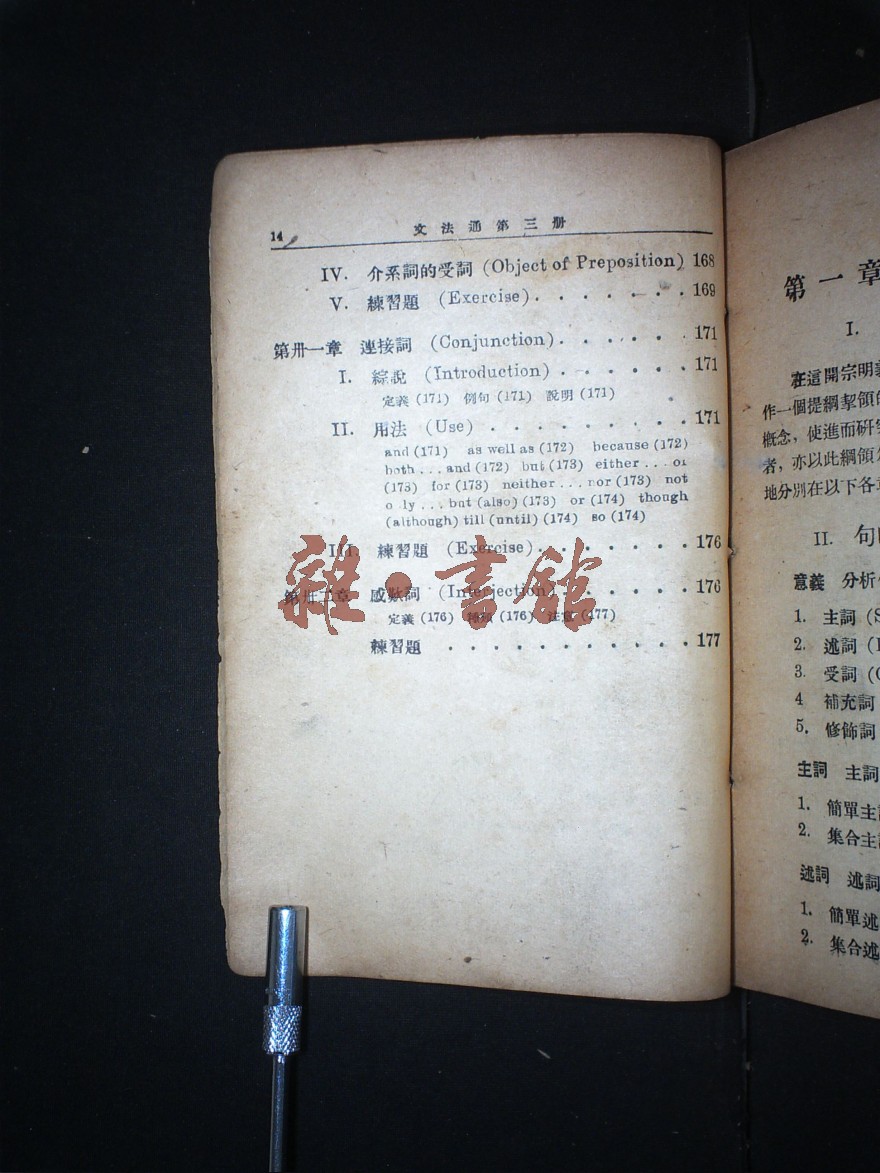 14
文法通第三册
IV. 介系詞的受詞 (Object of Preposition) 168
V. 練習題 (Exercise). . . . . . . 169
第卅一章 連接詞 (Conjunction). . . . . . 171
I. 綜說 (Introduction) . . . . . . 171
定義 (171) 例句 (171) 說明 (171)
II. 用法 (Use) . . . . . . . . . . 171
and (171) as well as (172) because (172)
both ... and (172) but (173) either ... or
(173) for (173) neither ... nor (173) not
o ly ... but (also) (173) or (174) though
(although) till (until) (174) so (174)
III. 練習題 (Exercise). . . . . . . 176
第卅二章 感歎詞 (Interjection) . . . . . . 176
定義 (176) 種類 (176) 注意 (177)
練習題 . . . . . . . . . . . . 177
雜·書館
第一章
I.
在這開宗明義
作一個提綱挈領的
概念，使進而研究
者，亦以此綱領
地分別在以下各章
II. 句
意義 分析
1. 主詞 (S
2. 述詞 (
3. 受詞 (
4 補充詞
5. 修飾詞
主詞 主詞
1. 簡單主
2. 集合主
述詞 述詞
1. 簡單述
2. 集合述